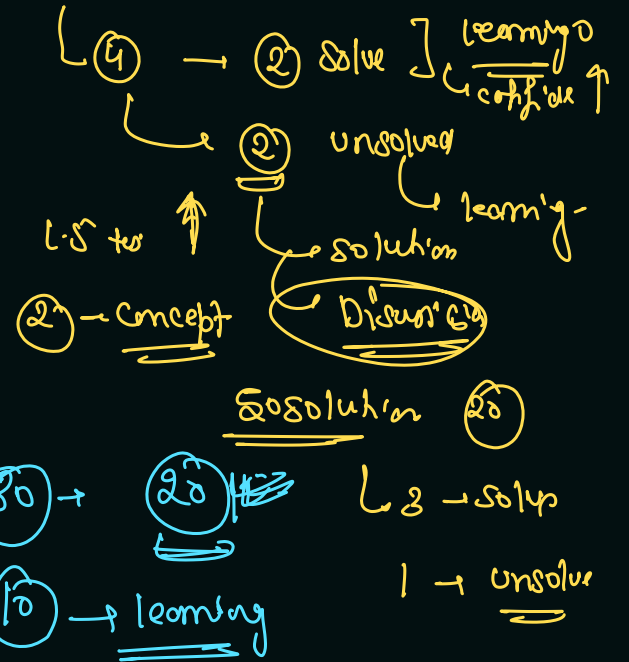 4 → 2 solve ] learning 0
confide ↑
2 unsolved
learnig -
1.5 ↑
solution
2 - Concept
Disussion
solution 20
30 → 20
3 → solve
1 → unsolve
10 → learning